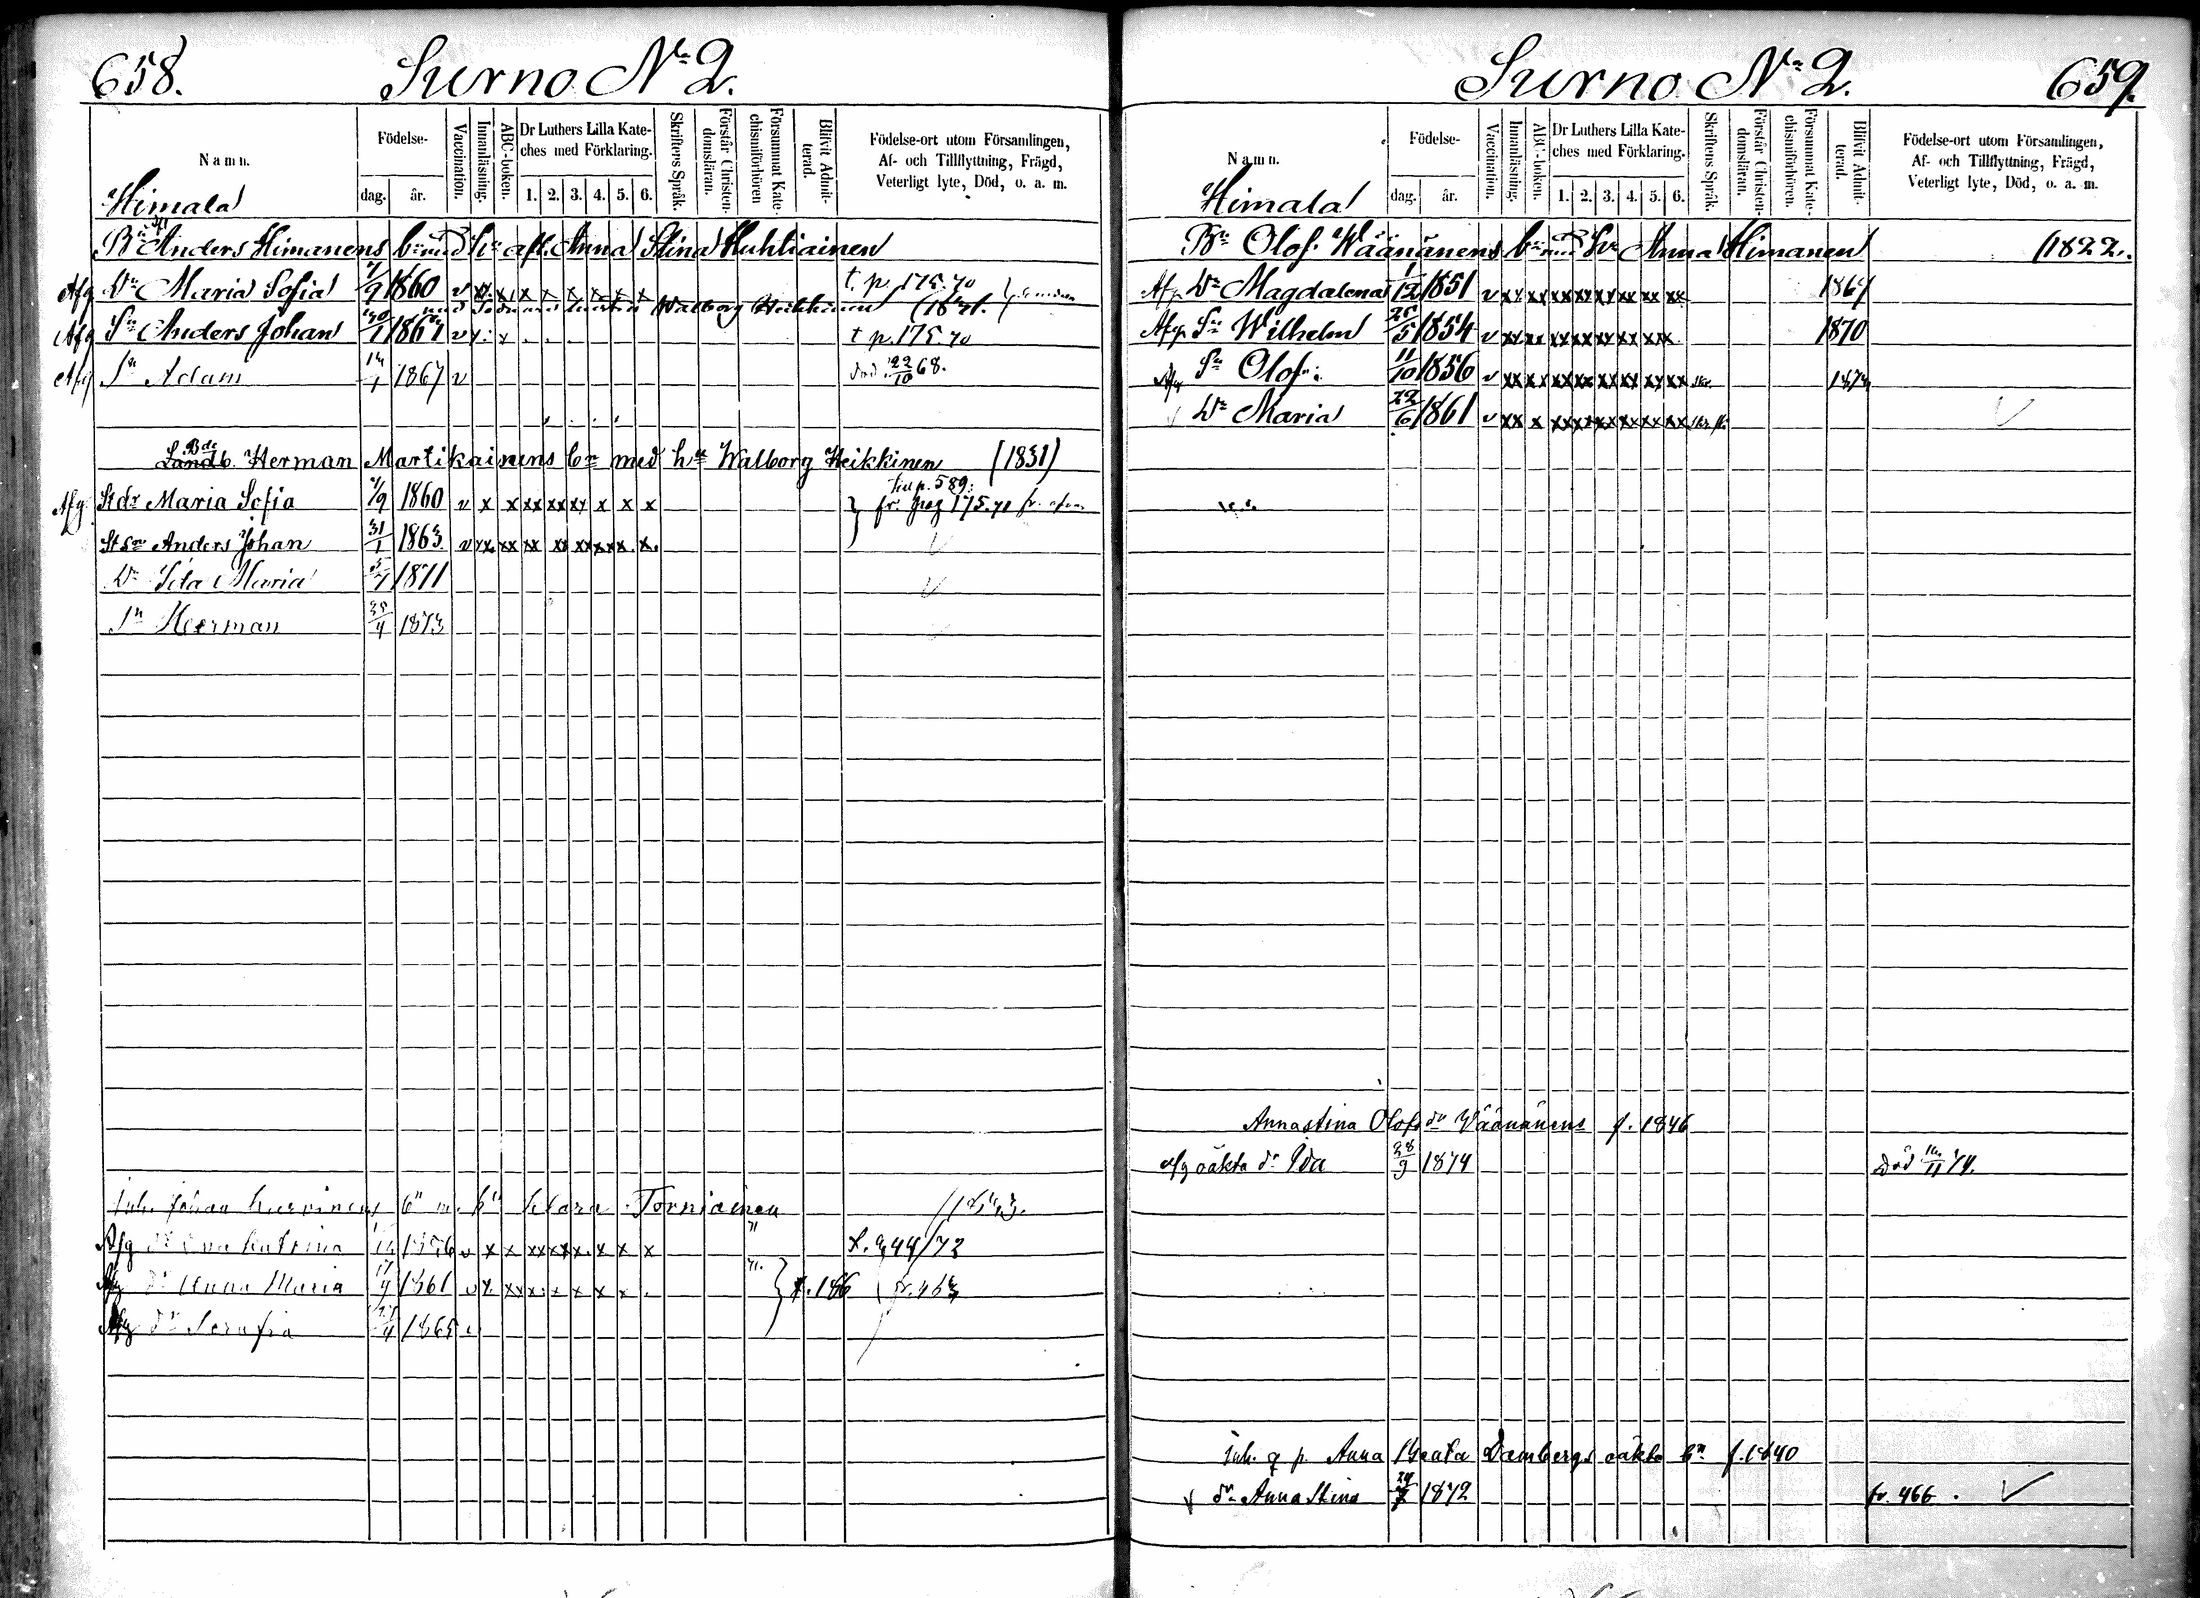 658. Surno No 2.
Namn.
Födelse-
dag. år.
Vaccination.
Innanläsning.
ABC-boken.
Dr Luthers Lilla Kate-
ches med Förklaring.
1. 2. 3. 4. 5. 6.
Skriftens Språk.
Förstår Christen-
domsläran.
Försummat Kate-
chismiförhören
Blifvit Admit-
terad.
Födelse-ort utom Församlingen,
Af- och Tillflyttning, Frägd,
Veterligt lyte, Död, o. a. m.
Himala
Bn Anders Himanens bn med hu afl. Anna Stina Huhliainen
Afg Dr Maria Sofia 1/9 1860 v x x x x x x x x t. p. 175.70
Walborg Heikkinen (1831.
Afg Sn Anders Johan 1863 v t p. 175.70
Afg Sn Adam 1867 v död 22/10 68.
Bde
Landb. Herman Martikainens bn med hu Walborg Heikkinen (1831)
till p. 589.
Afg. Stdr Maria Sofia 1/9 1860 v x x xx xx xx x x x fr. pag 175.70
Stsn Anders Johan 31/1 1863 v xx xx xx xx xx xx x. x.
Dr Ida Maria 5/7 1871
Sn Herman 1873
Inh. Johan Hurvinens bn m. hu Klara Torniainen
71
Afg dr Eva Katrina 1856 v x x xx xx x. x x x t. 944/72
71.
Afg dr Anna Maria 1861 t. 186 fr. 463
Afg dr Serafia 1865 v
Surno No 2. 659.
Namn.
Födelse-
dag. år.
Vaccination.
Innanläsning.
ABC-boken.
Dr Luthers Lilla Kate-
ches med Förklaring.
1. 2. 3. 4. 5. 6.
Skriftens Språk.
Förstår Christen-
domsläran.
Försummat Kate-
chismiförhören.
Blifvit Admit-
terad.
Födelse-ort utom Församlingen,
Af- och Tillflyttning, Frägd,
Veterligt lyte, Död, o. a. m.
Himala
Bn Olof Wäänänens bn med hu Anna Himanen (1822.
Afg Dr Magdalena 1/12 1851 v xx xx xx xx xx xx xx xx 1867
Afg Sn Wilhelm 25/5 1854 v xx xx xx xx xx xx xx xx 1870
Afg Sn Olof 11/10 1856 v xx xx xx xx xx xx xx xx skr.
Dr Maria 22/6 1861 v xx x xx xx xx xx xx xx
Annastina Olofsdr Wäänänens f. 1846
Afg oäkta dr Ida 28/9 1874 Död
Inh. q p. Anna Beata Dambergs oäkta bn f. 1840
v dr Anna Stina 1872 fr. 466.